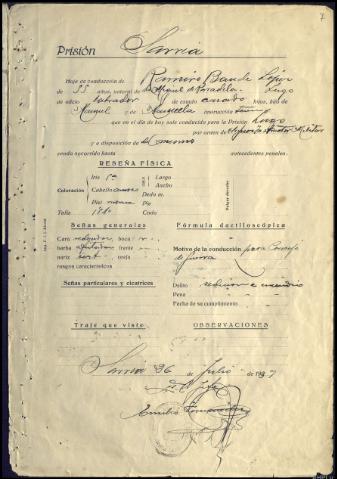 7
Prisión Sarria
Hoja de conducción de Ramiro Bande López
de 55 años, natural de Miguel de Paradela, Lugo
de oficio labrador de estado casado hijos, hijo de
Manuel y de instrucción
que en el día de hoy sale conducido para la Prisión Lugo
por orden de Auditor Militar
y a disposición de el mismo
siendo socorrido hasta antecedentes penales.
RESEÑA FÍSICA
Coloración Iris Largo
Ancho
Cabello canoso Dedo m.
Pie
Talla Codo
Pulgar derecho
Señas generales
Cara redonda boca
barba afeitada frente
nariz rect oreja
rasgos característicos
Fórmula dactiloscópica
Motivo de la conducción para Consejo
de guerra
Señas particulares y cicatrices
Delito rebelión e incendio
Pena
Fecha de su cumplimiento
Traje que viste
OBSERVACIONES
Sarria 26 de Julio de 1937
El Jefe
Emilio